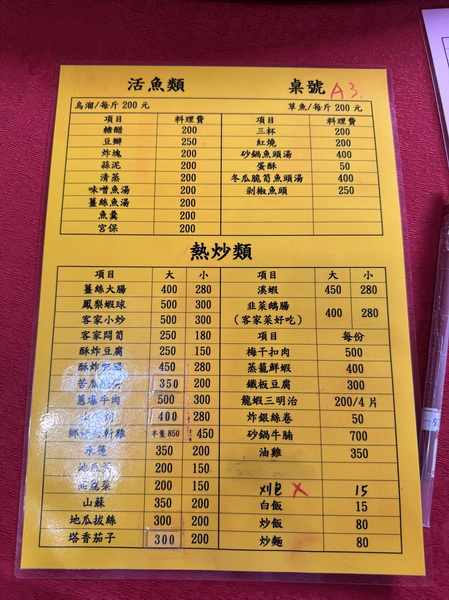 活魚類 桌號 A3.
烏溜/每斤 200 元 草魚/每斤 200 元
項目 料理費 項目 料理費
糖醋 200 三杯 200
豆瓣 250 紅燒 200
炸塊 200 砂鍋魚頭湯 400
蒜泥 200 蛋酥 50
清蒸 200 冬瓜脆筍魚頭湯 400
味噌魚湯 200 剁椒魚頭 250
薑絲魚湯 200
魚羹 200
宮保 200
熱炒類
項目 大 小 項目 大 小
薑絲大腸 400 280 溪蝦 450 280
鳳梨蝦球 500 300 韭菜鵝腸
客家小炒 500 300 (客家菜好吃) 400 280
客家悶筍 250 180 項目 每份
酥炸豆腐 250 150 梅干扣肉 500
酥炸 450 280 蒸籠鮮蝦 400
苦瓜 350 200 鐵板豆腐 300
蔥爆牛肉 500 300 龍蝦三明治 200/4 片
400 280 炸銀絲卷 50
雞 半隻850 450 砂鍋牛腩 700
水蓮 350 200 油雞 350
菜 200 150
菜 200 150 刈包 X 15
山蘇 350 200 白飯 15
地瓜拔絲 300 200 炒飯 80
塔香茄子 300 200 炒麵 80